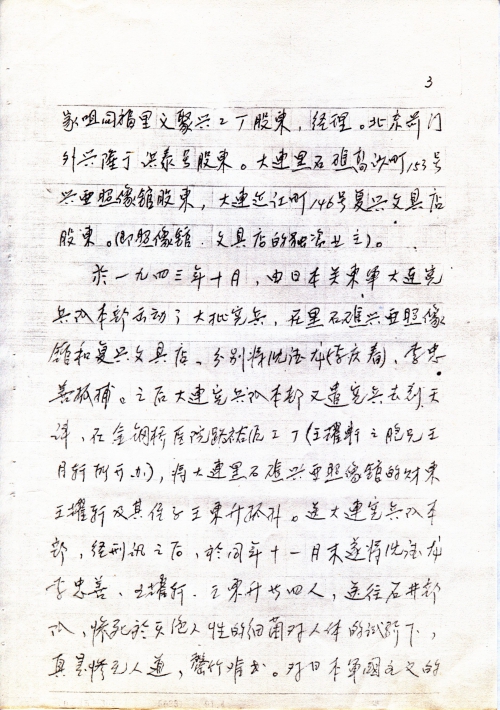 3
家咀同福里义聚兴工厂股東，经理。北京前门
外兴隆于洪泰号股東。大连黑石礁高沙町153号
兴亚照像舘股東，大连近江町146号复兴文具店
股東。(即照像舘、文具店的融资业主)。
於一九四三年十月，由日本关东軍大连宪
兵队本部出动了大批宪兵，在黑石礁兴亚照像
舘和复兴文具店。分别将沈得龙(李庆春)，李忠
善抓捕。之后大连宪兵队本部又遣宪兵去到天
津，在金钢桥医院路工厂(王耀軒之胞兄王
月轩所开办)，将大连黑石礁兴亚照像舘的财東
王耀轩及其侄子王東升抓补。送大连宪兵队本
部，经刑讯之后，於同年十一月末遂将沈得龙
李忠善、王耀轩、王東升共四人，送往石井部
队，惨死於灭绝人性的细菌对人体的试驗下，
真是惨无人道，罄竹难书。对日本軍國主义的